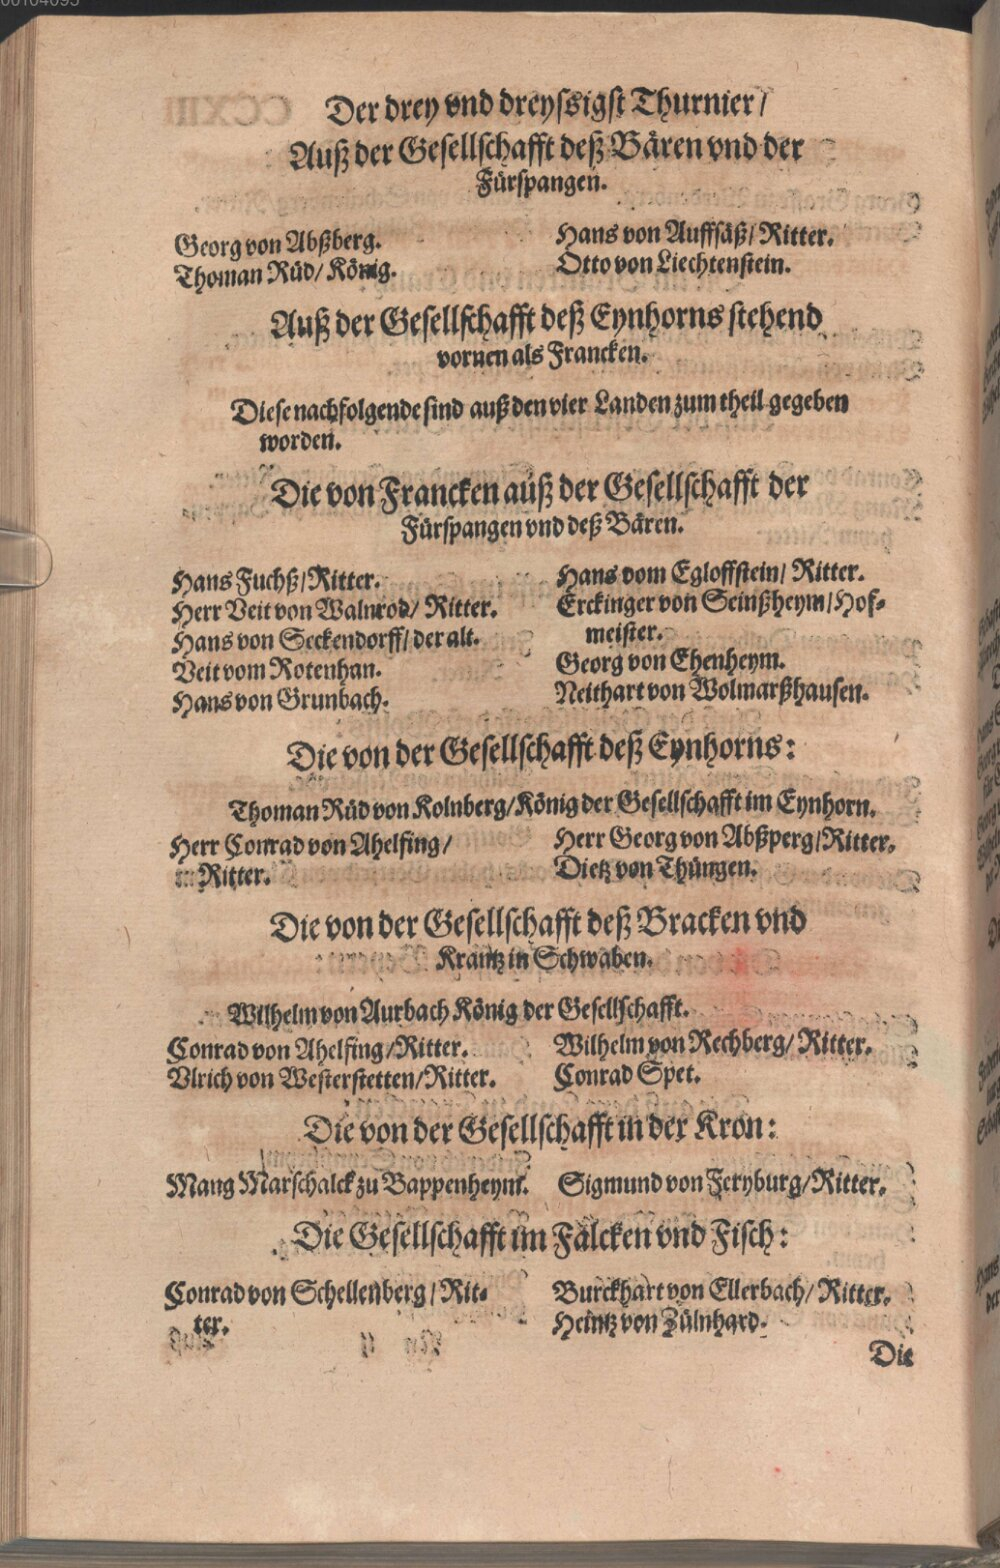 Der drey vnd dreyssigst Thurnier/
Auß der Gesellschafft deß Bären vnd der
Fürspangen.
Georg von Abßberg.
Thoman Rüd/ König.
Hans von Auffsäß/ Ritter.
Otto von Liechtenstein.
Auß der Gesellschafft deß Eynhorns stehend
vornen als Francken.
Diese nachfolgende sind auß den vier Landen zum theil gegeben
worden.
Die von Francken auß der Gesellschafft der
Fürspangen vnd deß Bären.
Hans Fuchß/ Ritter.
Herr Veit von Walnrod/ Ritter.
Hans von Seckendorff/ der alt.
Veit vom Rotenhan.
Hans von Grunbach.
Hans vom Egloffstein/ Ritter.
Erckinger von Seinßheym/ Hof-
meister.
Georg von Ehenheym.
Neithart von Wolmarßhausen.
Die von der Gesellschafft deß Eynhorns:
Thoman Rüd von Kolnberg/ König der Gesellschafft im Eynhorn.
Herr Conrad von Ahelfing/
Ritter.
Herr Georg von Abßperg/ Ritter.
Dietz von Thüngen.
Die von der Gesellschafft deß Bracken vnd
Krantz in Schwaben.
Wilhelm von Aurbach König der Gesellschafft.
Conrad von Ahelfing/ Ritter.
Vlrich von Westerstetten/ Ritter.
Wilhelm von Rechberg/ Ritter.
Conrad Spet.
Die von der Gesellschafft in der Kron:
Mang Marschalck zu Bappenheym.
Sigmund von Feryburg/ Ritter.
Die Gesellschafft im Fälcken vnd Fisch:
Conrad von Schellenberg/ Rit-
ter.
Burckhart von Ellerbach/ Ritter.
Heintz von Zülnhard.
Die